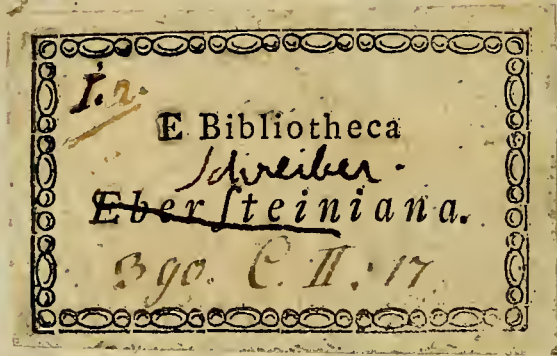 I. n.
E Bibliotheca
Schreiber.
Eberſteiniana.
390. C. II. 17